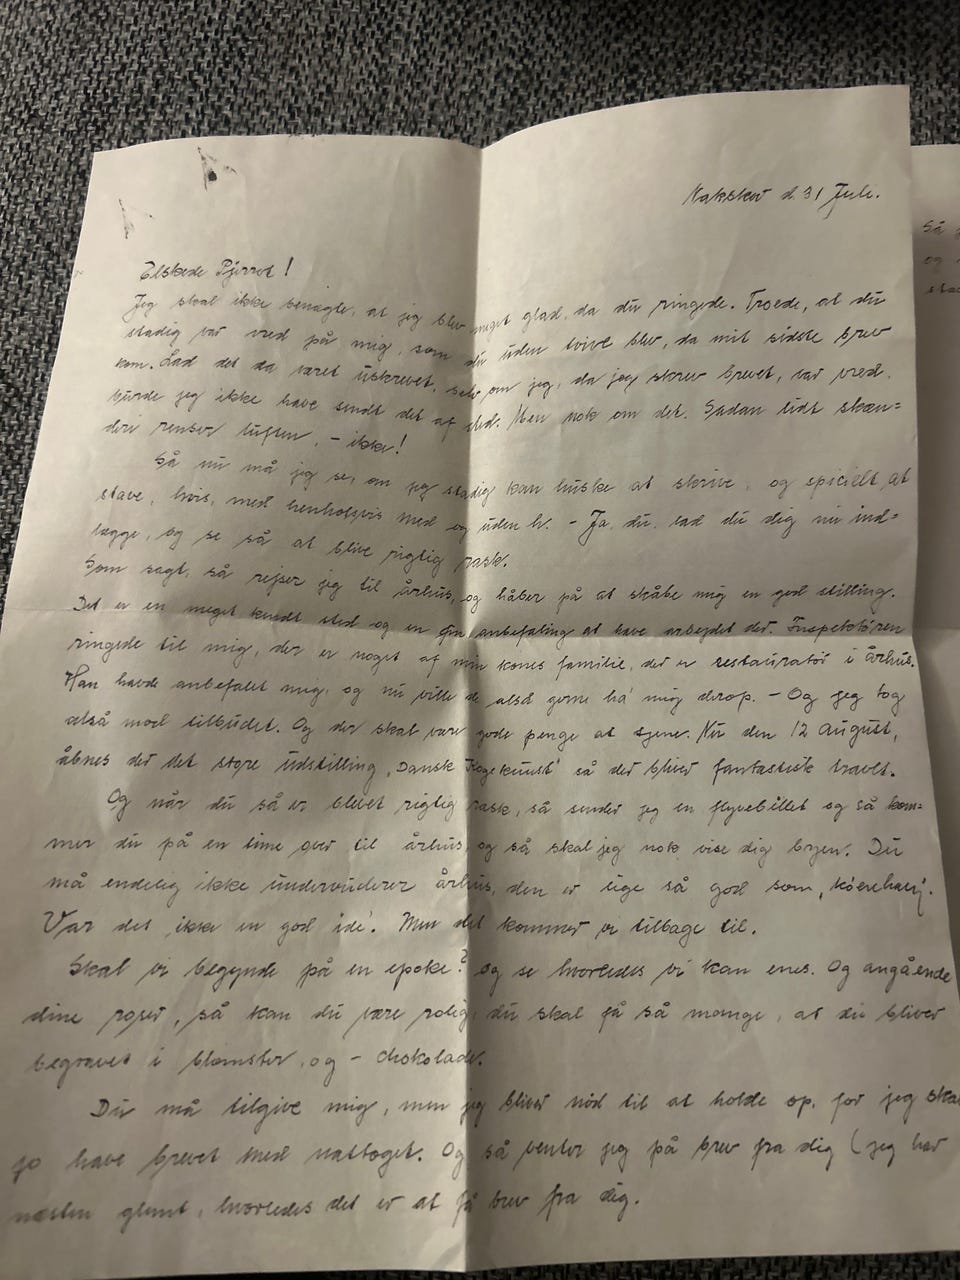 Nakskov d. 31 Juli.
Elskede Pjerrot!
Jeg skal ikke benægte, at jeg blev meget glad, da du ringede. Troede, at du
stadig var vred på mig, som du uden tvivl blev, da mit sidste brev
kom. Lad det da været uskrevet, selv om jeg, da jeg skrev brevet, var vred.
burde jeg ikke have sendt det af sted. Men nok om det. Sådan lidt skæn=
deri renser luften, – ikke!
Så nu må jeg se, om jeg stadig kan huske at skrive, og spicielt at
stave, hvis, med henholsvis med og uden h. – Ja, du, lad du dig nu ind=
lægge, og se så at blive rigtig rask.
Som sagt, så rejser jeg til århus, og håber på at skåbe mig en god stilling.
Det er en meget kendt sted og en fin anbefaling at have arbejdet der. Inspektøren
ringede til mig, der er noget af min kones familie, der er restauratør i århus.
Han havde anbefalet mig, og nu ville de altså gerne ha' mig derop. – Og jeg tog
altså mod tilbudet. Og der skal være gode penge at tjene. Nu den 12 august,
åbnes der det store udstilling „Dansk Kogekunst" så der bliver fantastisk travlt.
Og når du så er blevet rigtig rask, så sender jeg en flyvebillet og så kom=
mer du på en time over til århus, og så skal jeg nok vise dig byen. Du
må endelig ikke undervurderer århus, den er lige så god som,
Var det ikke en god idé. Men det kommer vi tilbage til.
Skal vi begynde på en epoke? og se hvorledes vi kan enes. Og angående
dine roser, så kan du være rolig, du skal få så mange, at du bliver
begravet i blomster, og – chokolade.
Du må tilgive mig, men jeg bliver nød til at holde op, for jeg ska
jo have brevet med nattoget. Og så venter jeg på brev fra dig (jeg har
næsten glemt, hvorledes det er at få brev fra dig.
Så
og